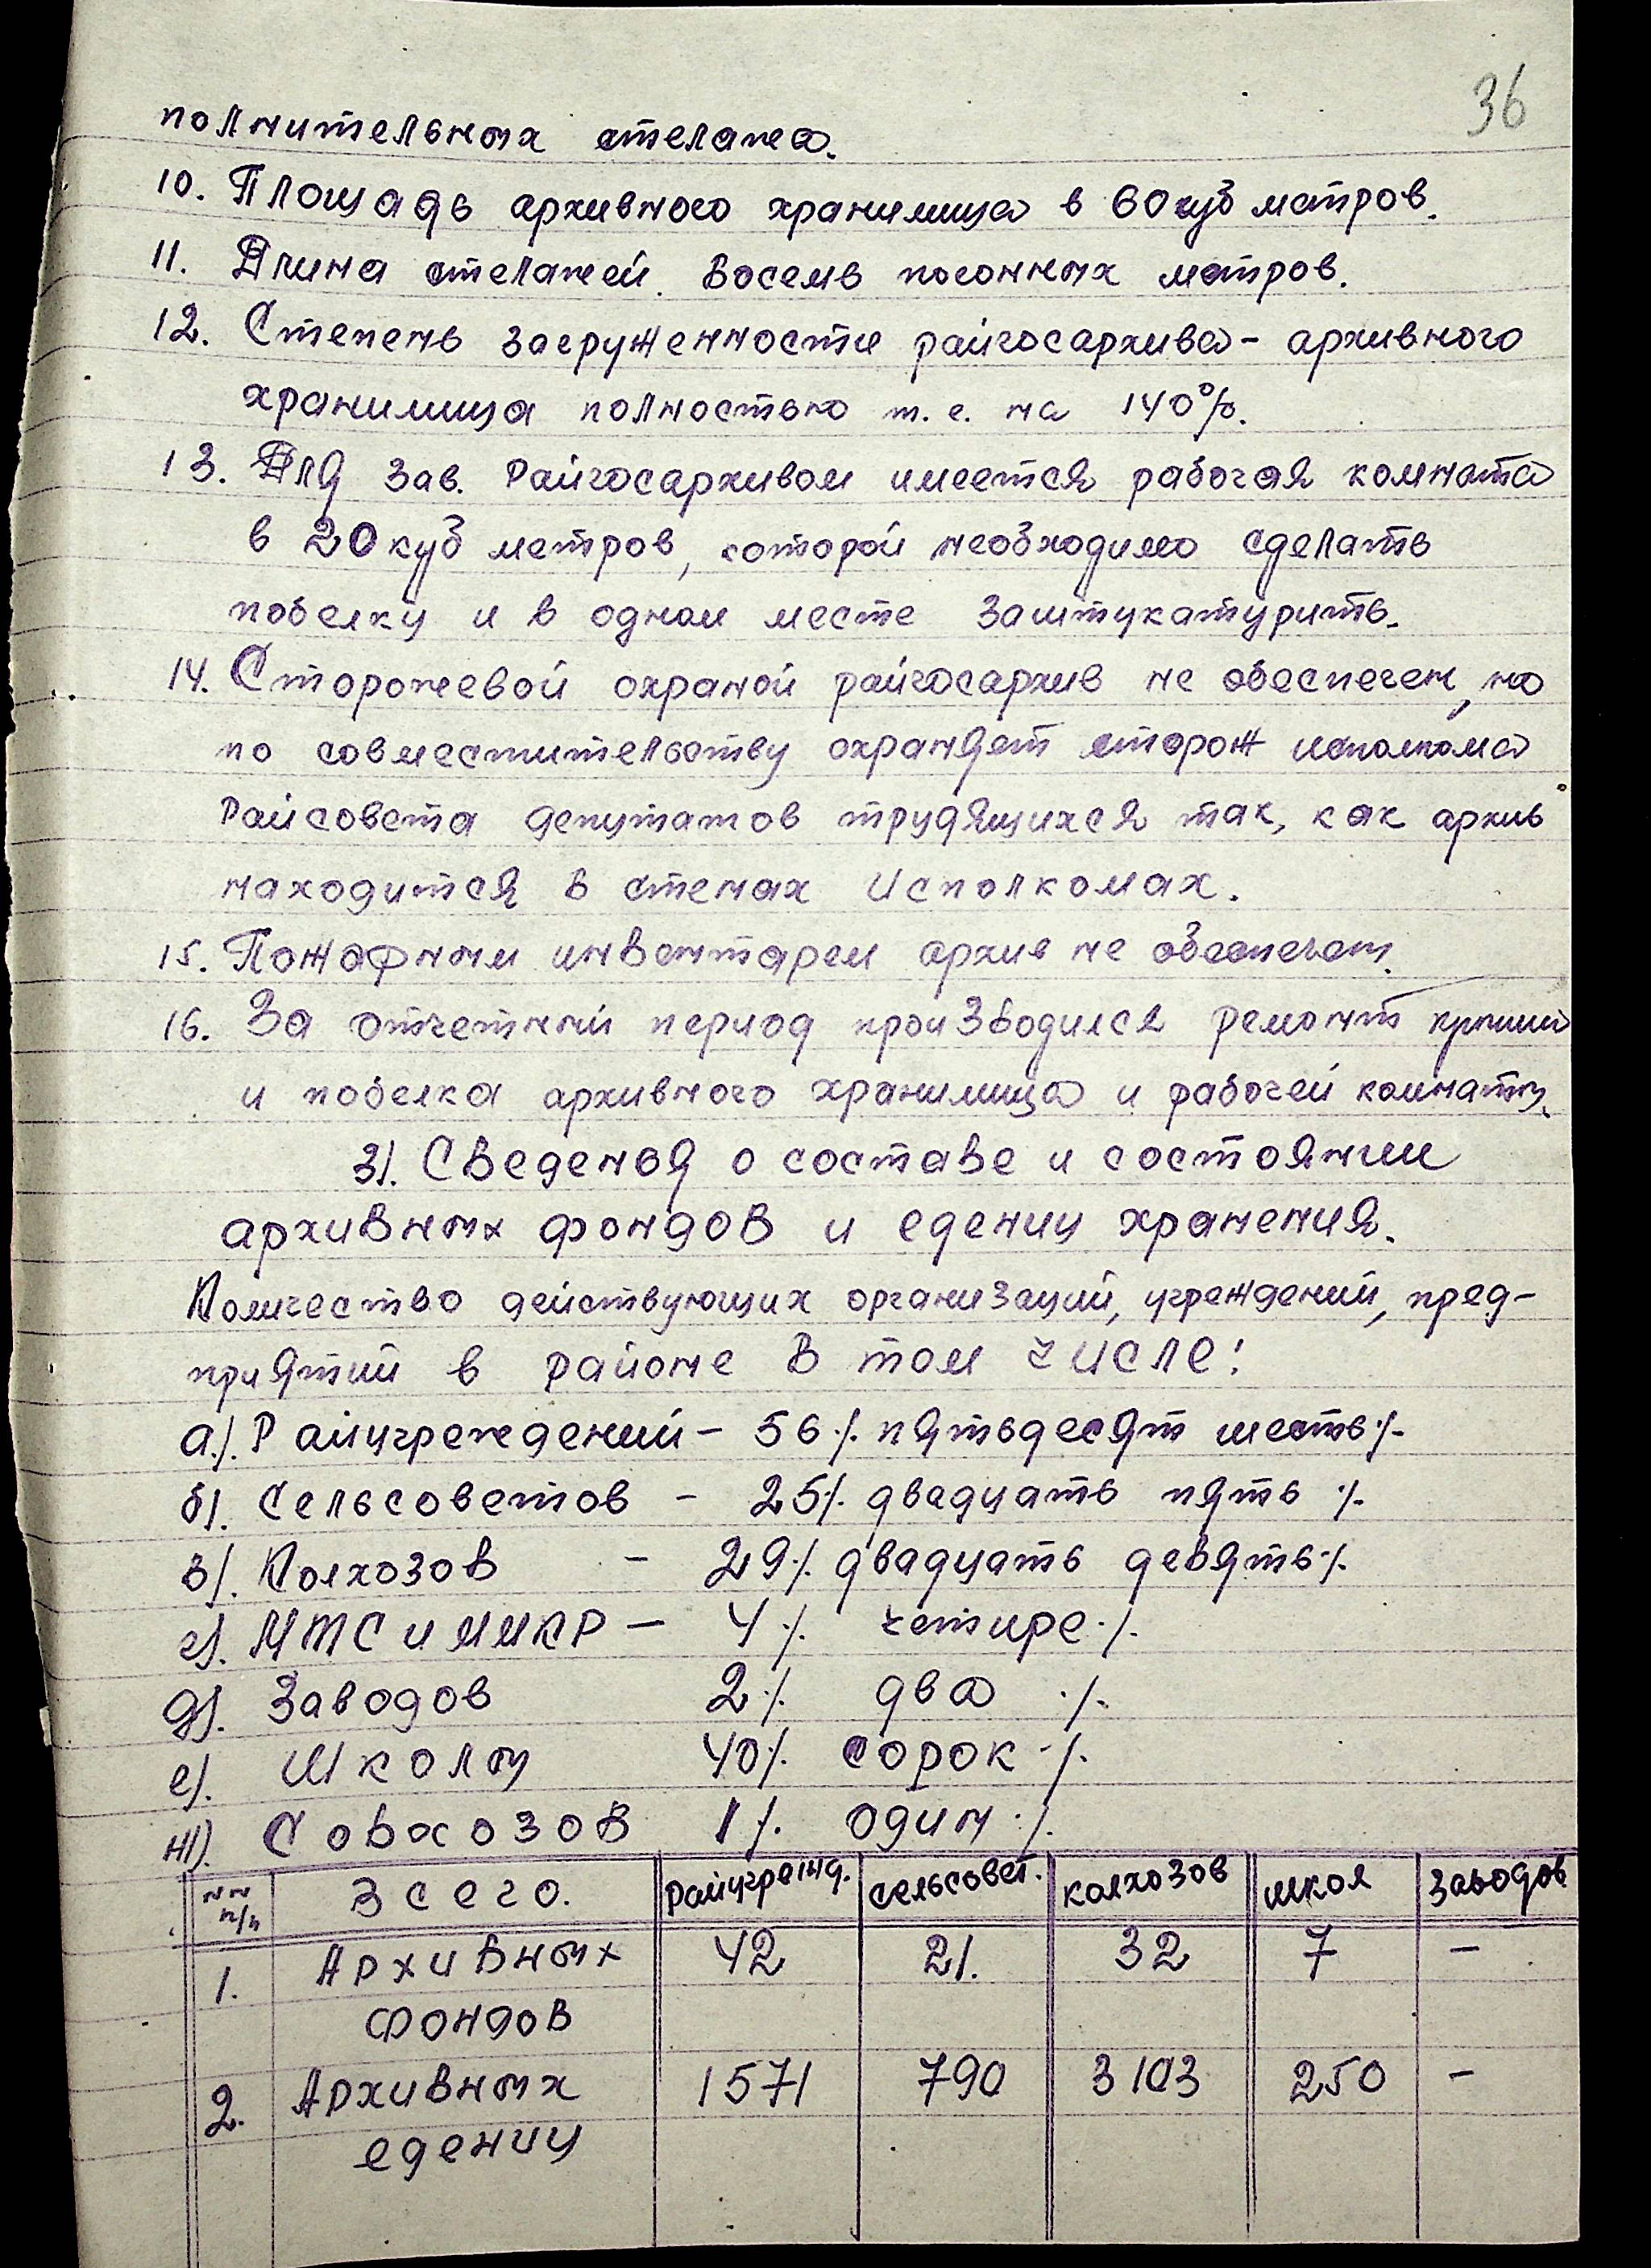 36
полнительных стелажа.
10. Площадь архивного хранилища в 60 куб метров.
11. Длина стелажей. Восемь погонных метров.
12. Степень загруженности райгосархива - архивного
хранилища полностью т. е. на 140%.
13. Для Зав. Райгосархивом имеется рабочая комната
в 20 куб метров, которой необходимо сделать
побелку и в одном месте заштукатурить.
14. Сторожевой охраной райгосархив не обеспечен, но
по совместительству охраняет сторож исполкома
Райсовета депутатов трудящихся так, как архив
находится в стенах Исполкомах.
15. Пожафным инвентарем архив не обеспечен.
16. За отчетный период производился ремонт крыши
и побелка архивного хранилища и рабочей комнаты.
3/. Сведенья о составе и состоянии
архивных фондов и едениц хранения.
Количество действующих организаций, учреждений, пред-
приятий в районе в том числе:
а/. Райучреждений - 56 ./. пятьдесят шесть ./.
б/. Сельсоветов - 25 ./. двадцать пять ./.
в/. Колхозов - 29 ./. двадцать девять ./.
г/. МТС и ММКР - 4 ./. четыре ./.
д/. Заводов 2 ./. два ./.
е/. Школы 40 ./. сорок ./.
ж/. Совхозов 1 ./. один ./.
№№ п/п Всего. Райучрежд. сельсовет. колхозов школ заводов
1. Архивных фондов 42 21. 32 7 -
2. Архивных едениц 1571 790 3103 250 -